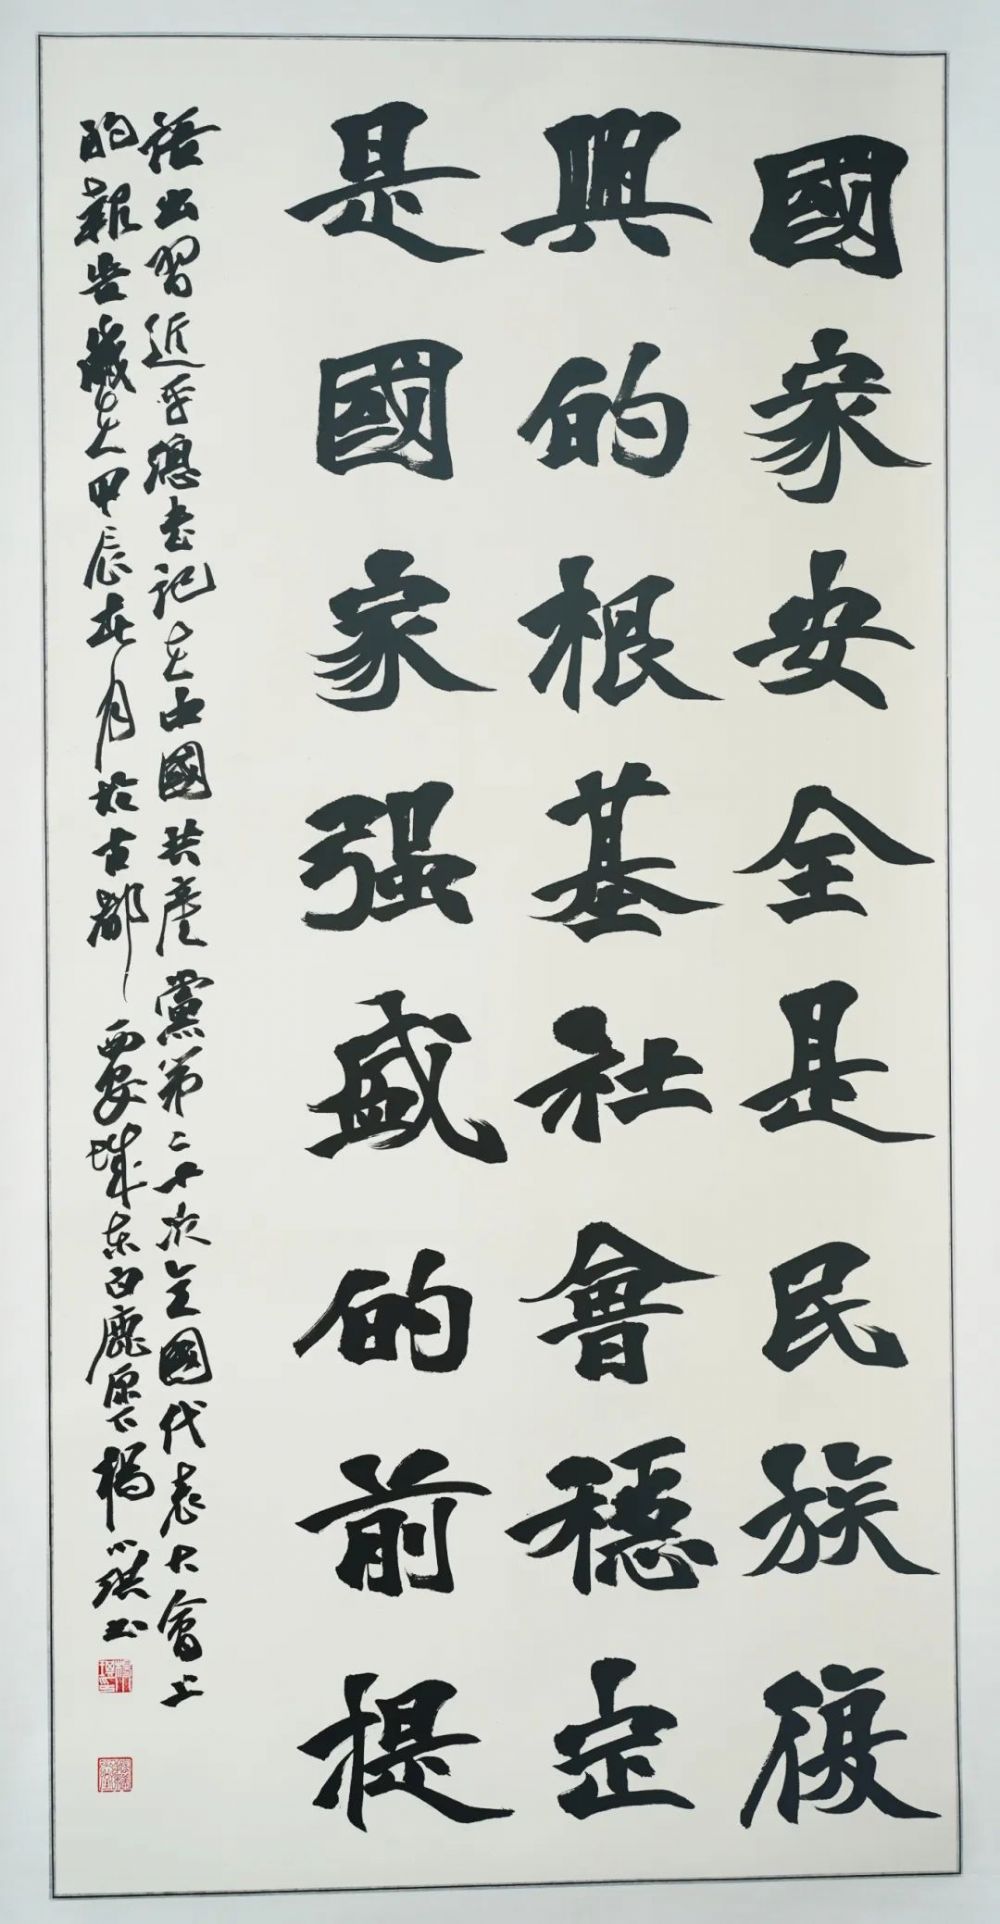 國家安全是民族復
興的根基社會穩定
是國家强盛的前提
語出習近平總書記在中國共產黨第二十次全國代表大會上
的報告歲在甲辰月於古都西安城東白鹿原下楊小琪書